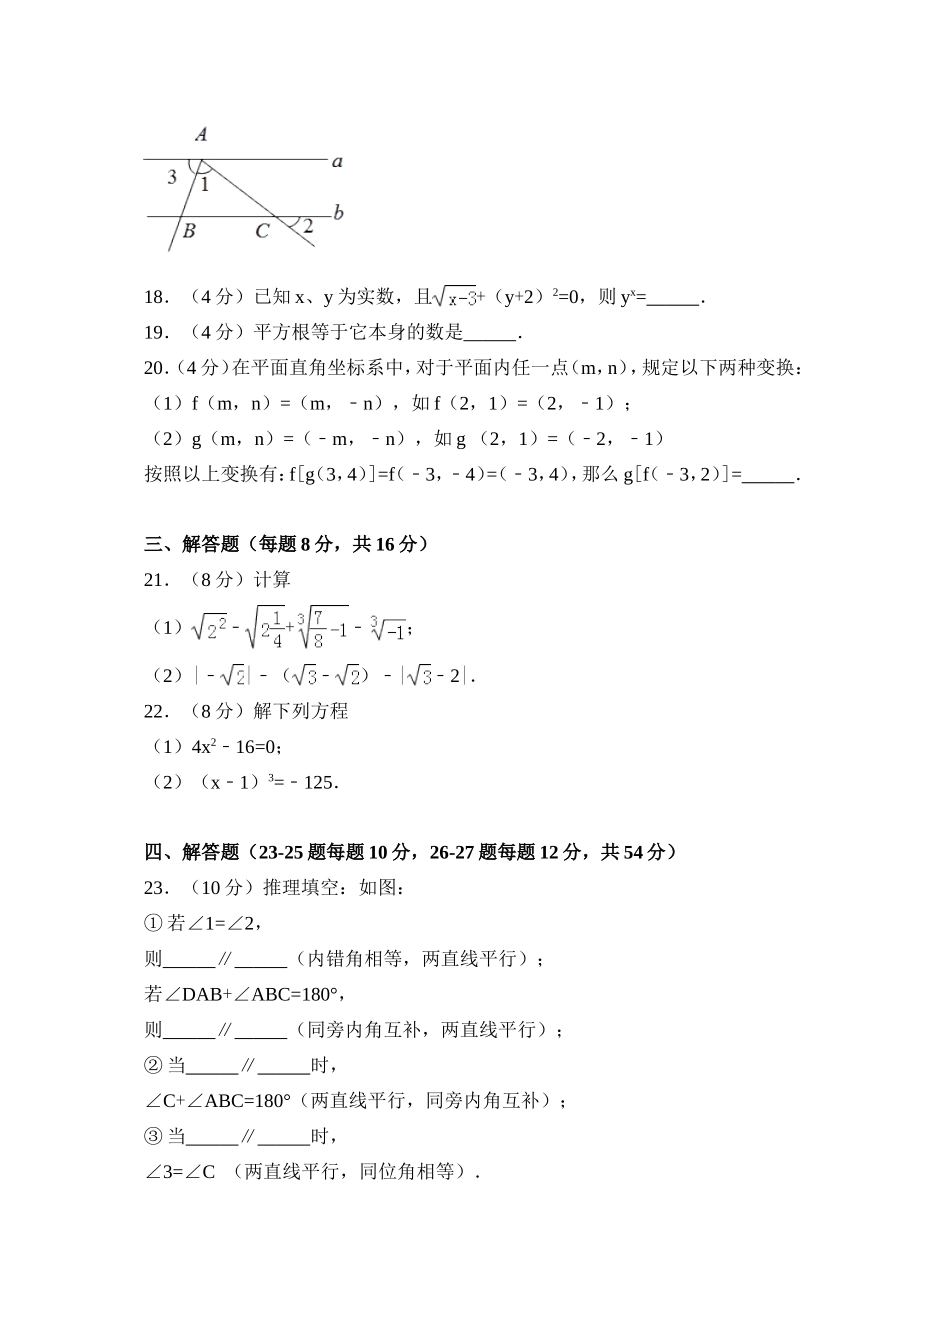 A
a
3
1
b
B
C
2
18．（4 分）已知 x、y 为实数，且√(x−3)+（y+2）²=0，则 yˣ=_____．
19．（4 分）平方根等于它本身的数是_____．
20．（4 分）在平面直角坐标系中，对于平面内任一点（m，n），规定以下两种变换：
（1）f（m，n）=（m，﹣n），如 f（2，1）=（2，﹣1）；
（2）g（m，n）=（﹣m，﹣n），如 g （2，1）=（﹣2，﹣1）
按照以上变换有：f[g（3，4）]=f（﹣3，﹣4）=（﹣3，4），那么 g[f（﹣3，2）]=_____．
三、解答题（每题 8 分，共 16 分）
21．（8 分）计算
（1）√(2²)﹣√(2 1/4)+∛(7/8−1)﹣∛(−1)；
（2）|﹣√2|﹣（√3﹣√2）﹣|√3﹣2|．
22．（8 分）解下列方程
（1）4x²﹣16=0；
（2）（x﹣1）³=﹣125．
四、解答题（23-25 题每题 10 分，26-27 题每题 12 分，共 54 分）
23．（10 分）推理填空：如图：
① 若∠1=∠2，
则_____∥_____（内错角相等，两直线平行）；
若∠DAB+∠ABC=180°，
则_____∥_____（同旁内角互补，两直线平行）；
② 当_____∥_____时，
∠C+∠ABC=180°（两直线平行，同旁内角互补）；
③ 当_____∥_____时，
∠3=∠C （两直线平行，同位角相等）．